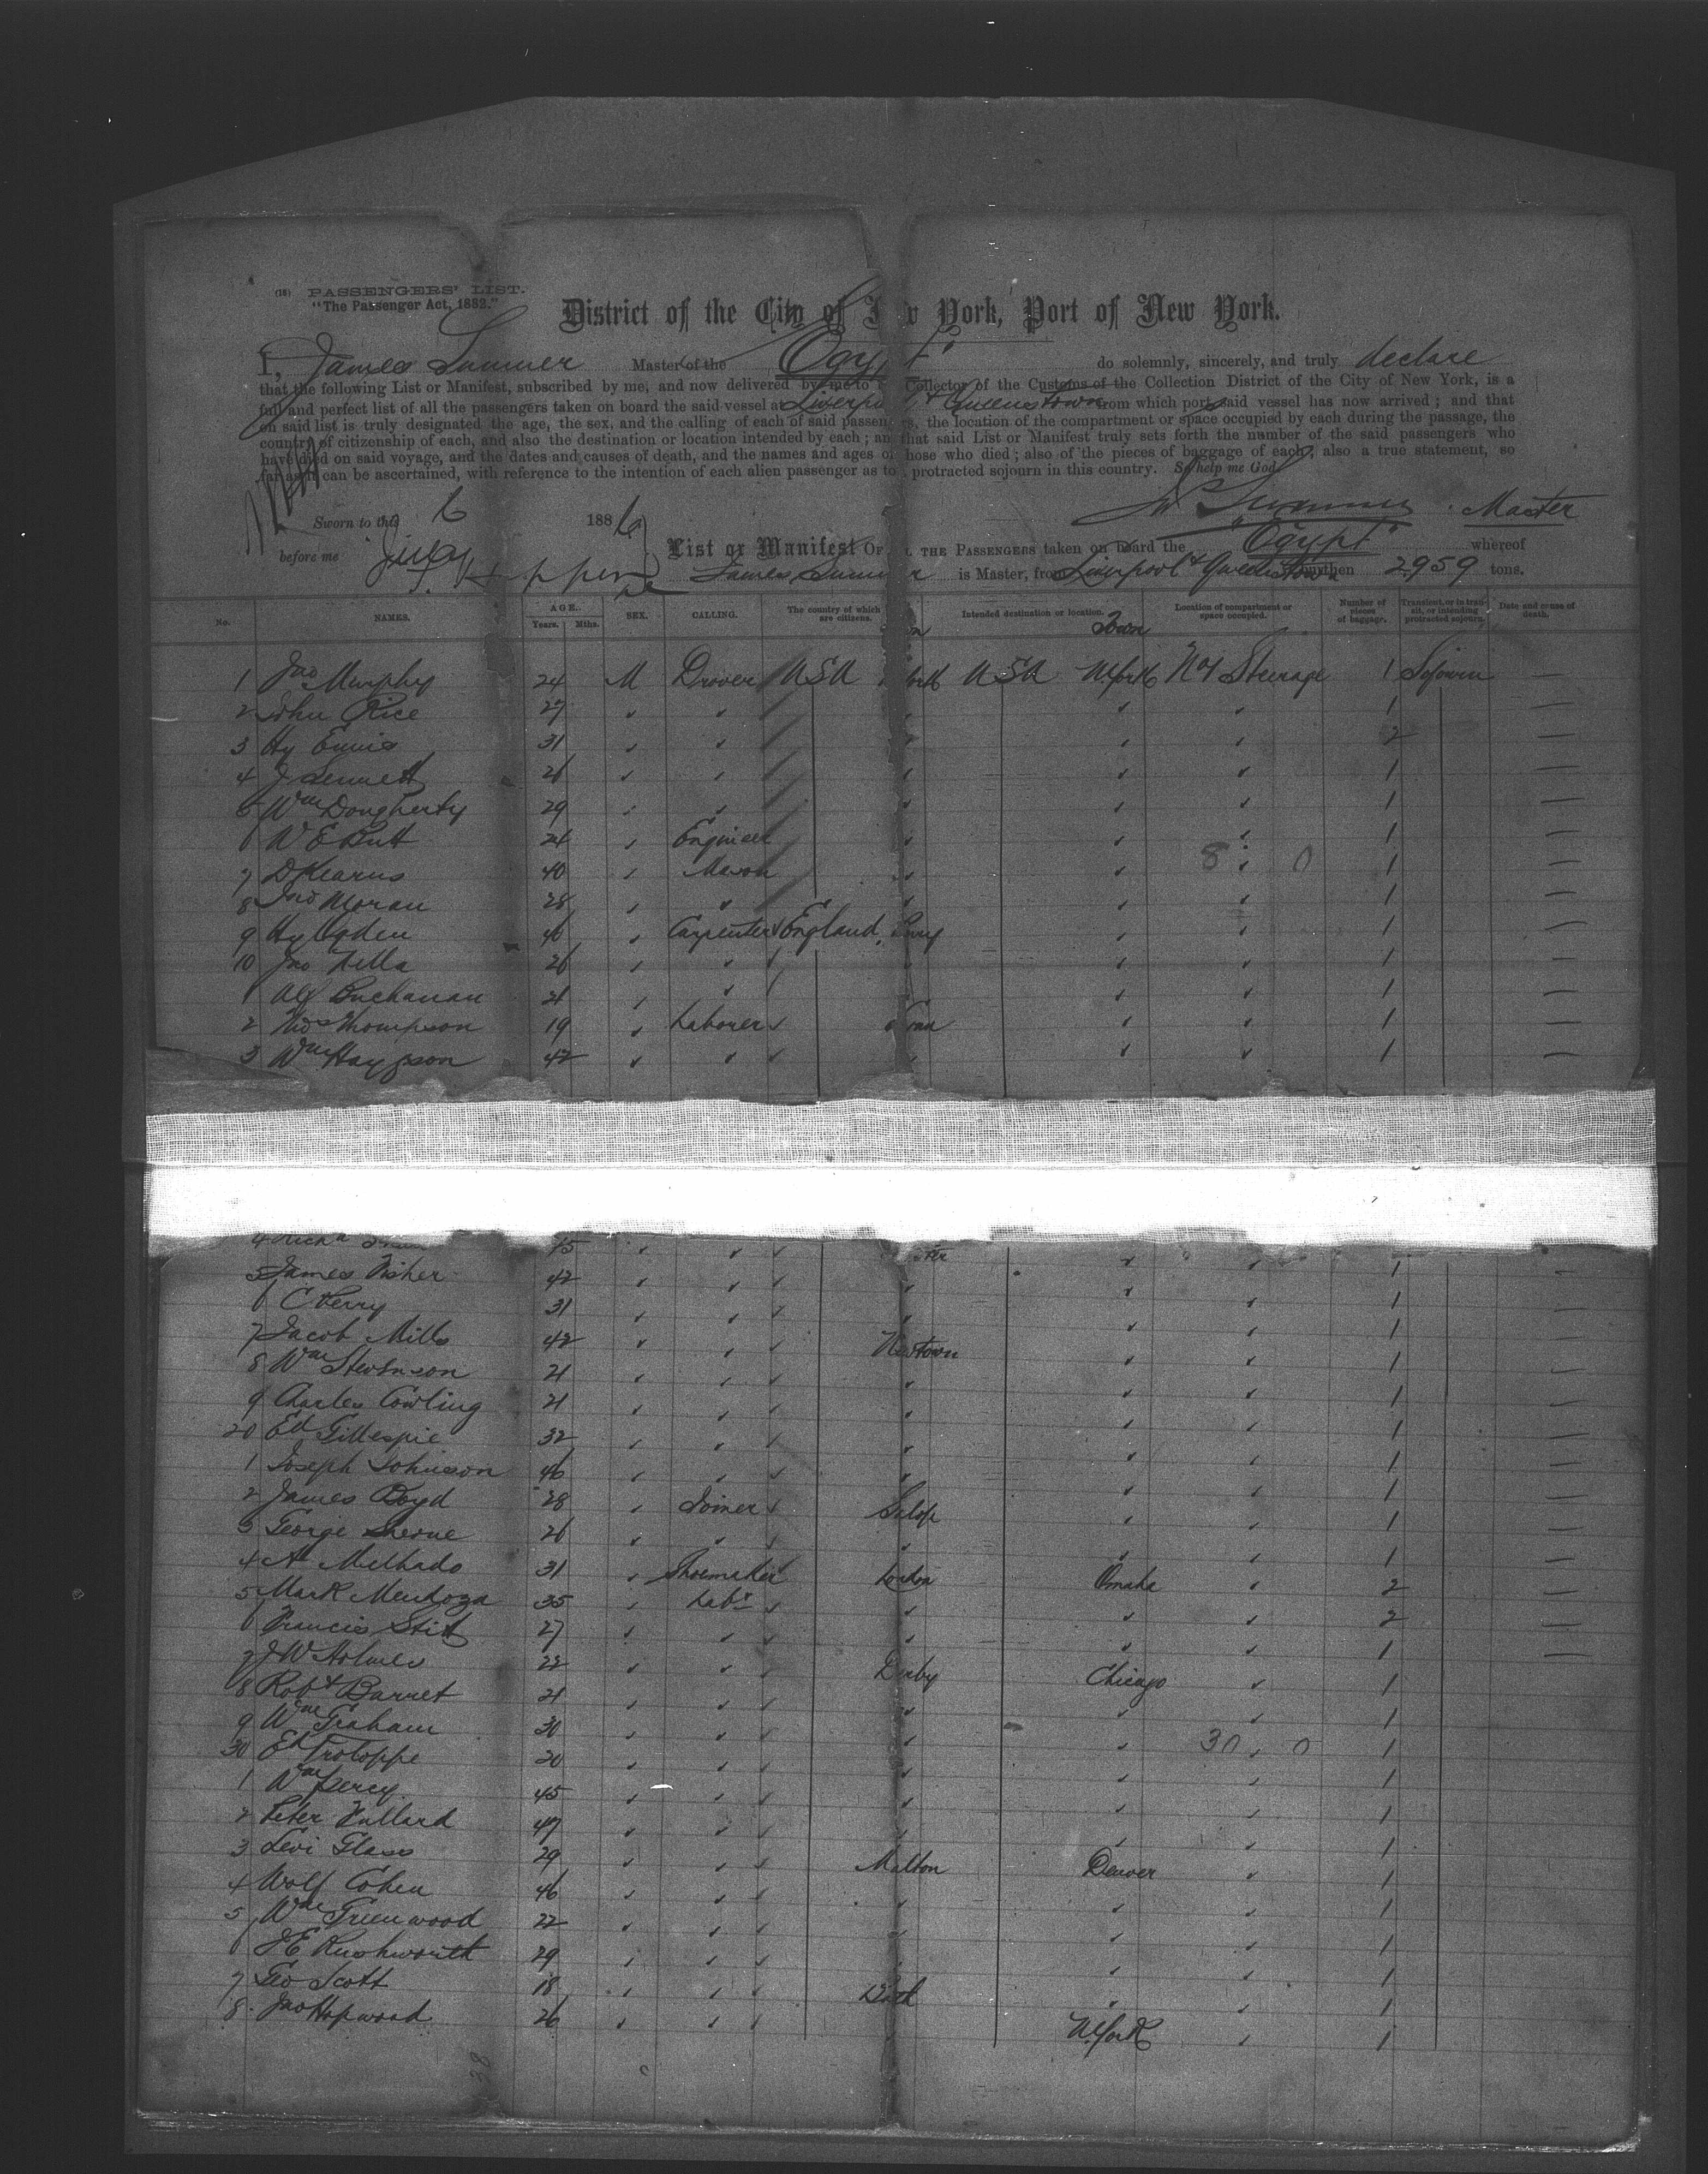 (18) PASSENGERS' LIST.
"The Passenger Act, 1882."
District of the City of New York, Port of New York.
I, James Sumner Master of the "Egypt" do solemnly, sincerely, and truly declare
that the following List or Manifest, subscribed by me, and now delivered by me to Collector of the Customs of the Collection District of the City of New York, is a
full and perfect list of all the passengers taken on board the said vessel at Liverpool & Queenstown from which port said vessel has now arrived; and that
on said list is truly designated the age, the sex, and the calling of each of said passengers, the location of the compartment or space occupied by each during the passage, the
country of citizenship of each, and also the destination or location intended by each; and that said List or Manifest truly sets forth the number of the said passengers who
have died on said voyage, and the dates and causes of death, and the names and ages of those who died; also of the pieces of baggage of each; also a true statement, so
far as it can be ascertained, with reference to the intention of each alien passenger as to protracted sojourn in this country. So help me God.
Sumner Master
Sworn to this 6 1886
before me July
List or Manifest OF ALL THE PASSENGERS taken on board the "Egypt" whereof
James Sumner is Master, from Liverpool & Queenstown burthen 2959 tons.
No. NAMES. AGE. Years. Mths. SEX. CALLING. The country of which are citizens. Intended destination or location. Town Location of compartment or space occupied. Number of pieces of baggage. Transient, or in transit, or intending protracted sojourn. Date and cause of death.
1 Jno Murphy 24 M Drover USA York USA NYork No 1 Steerage 1 Sojourn —
2 John Rice 27 1 —
3 Hy Ennis 31 2 —
4 J Sennett 26 1 —
5 Wm Dougherty 29 1 —
6 W E Butt 24 Engineer 1 —
7 D Kearns 40 Mason 8 0 1 —
8 Jno Moran 28 1 —
9 Hy Ogden 40 Carpenter England 1 —
10 Jno 26 1 —
1 Alf Buchanan 21 1 —
2 Thos Thompson 19 Laborer 1 —
3 Wm 42 1 —
4 Richd 45 1 —
5 James Fisher 42 1 —
6 C Perry 31 1 —
7 Jacob Mills 42 Newtown 1 —
8 Wm Stevenson 21 1 —
9 Charles Cowling 21 1 —
20 Ed Gillespie 32 1 —
1 Joseph Johnson 46 1 —
2 James Boyd 28 Joiner Salop 1 —
3 George 26 1 —
4 A Melhado 31 Shoemaker London Omaha 2 —
5 Mark Mendoza 35 Labr 2 —
6 Francis Stitt 27 1 —
7 J W Holmes 22 Derby Chicago 1
8 Robt Barret 21 1
9 Wm Graham 30 30 0 1
30 Ed Troloppe 20 1
1 Wm Percy 45 1
2 Peter Hullard 47 1
3 Levi Glass 29 Malton Denver 1
4 Wolf Cohen 46 1
5 Wm Greenwood 22 1
6 J E Rushworth 29 1
7 Geo Scott 18 1
8 Jno Hopwood 26 N.York 1
38